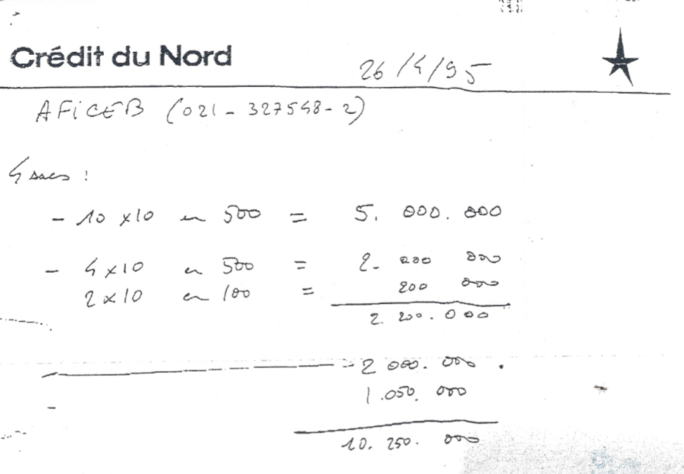 Crédit du Nord
26/4/95
AFICEB (021-327548-2)
4 sacs :
- 10 x10 en 500 = 5. 000. 000
- 4 x10 en 500 = 2. 000 000
2 x10 en 100 = 200 000
2 200. 000
2 000. 000.
1.050. 000
10. 250. 000